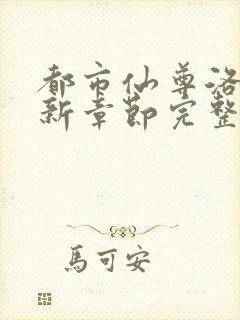 都市仙尊洛
新章節完整
馬可安